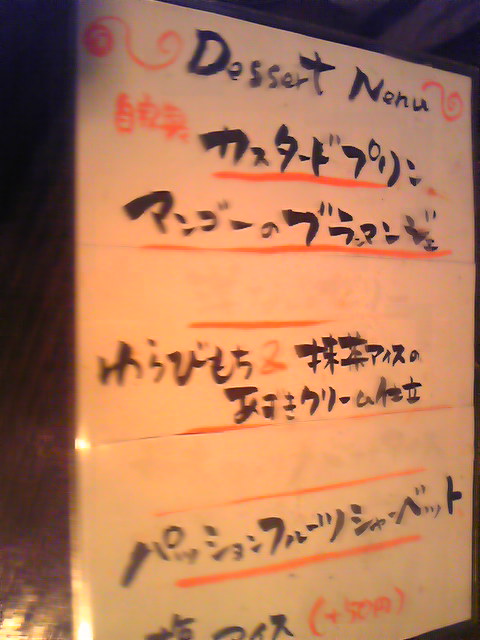 Dessert Menu
自家製
カスタードプリン
マンゴーのブランマンジェ
わらびもち & 抹茶アイスの
あずきクリーム仕立
パッションフルーツシャーベット
塩アイス (+50円)